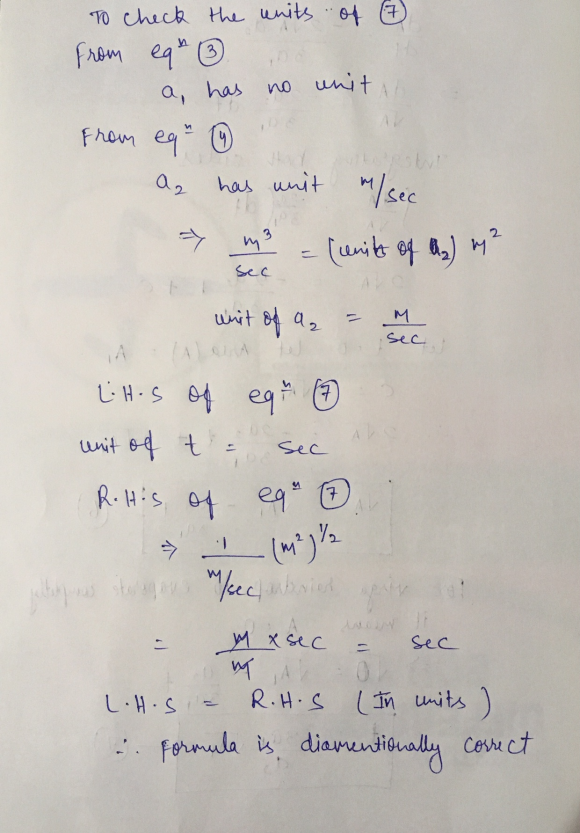 To check the units of ⑦
From eqⁿ ③
a₁ has no unit
From eqⁿ ④
a₂ has unit m/sec
⇒ m³/sec = (units of a₂) m²
unit of a₂ = m/sec
L.H.S of eqⁿ ⑦
unit of t = sec
R.H.S of eqⁿ ⑦
⇒ 1/(m/sec) (m²)^1/2
= m/m × sec = sec
L.H.S = R.H.S (In units)
∴ formula is diamentionally correct